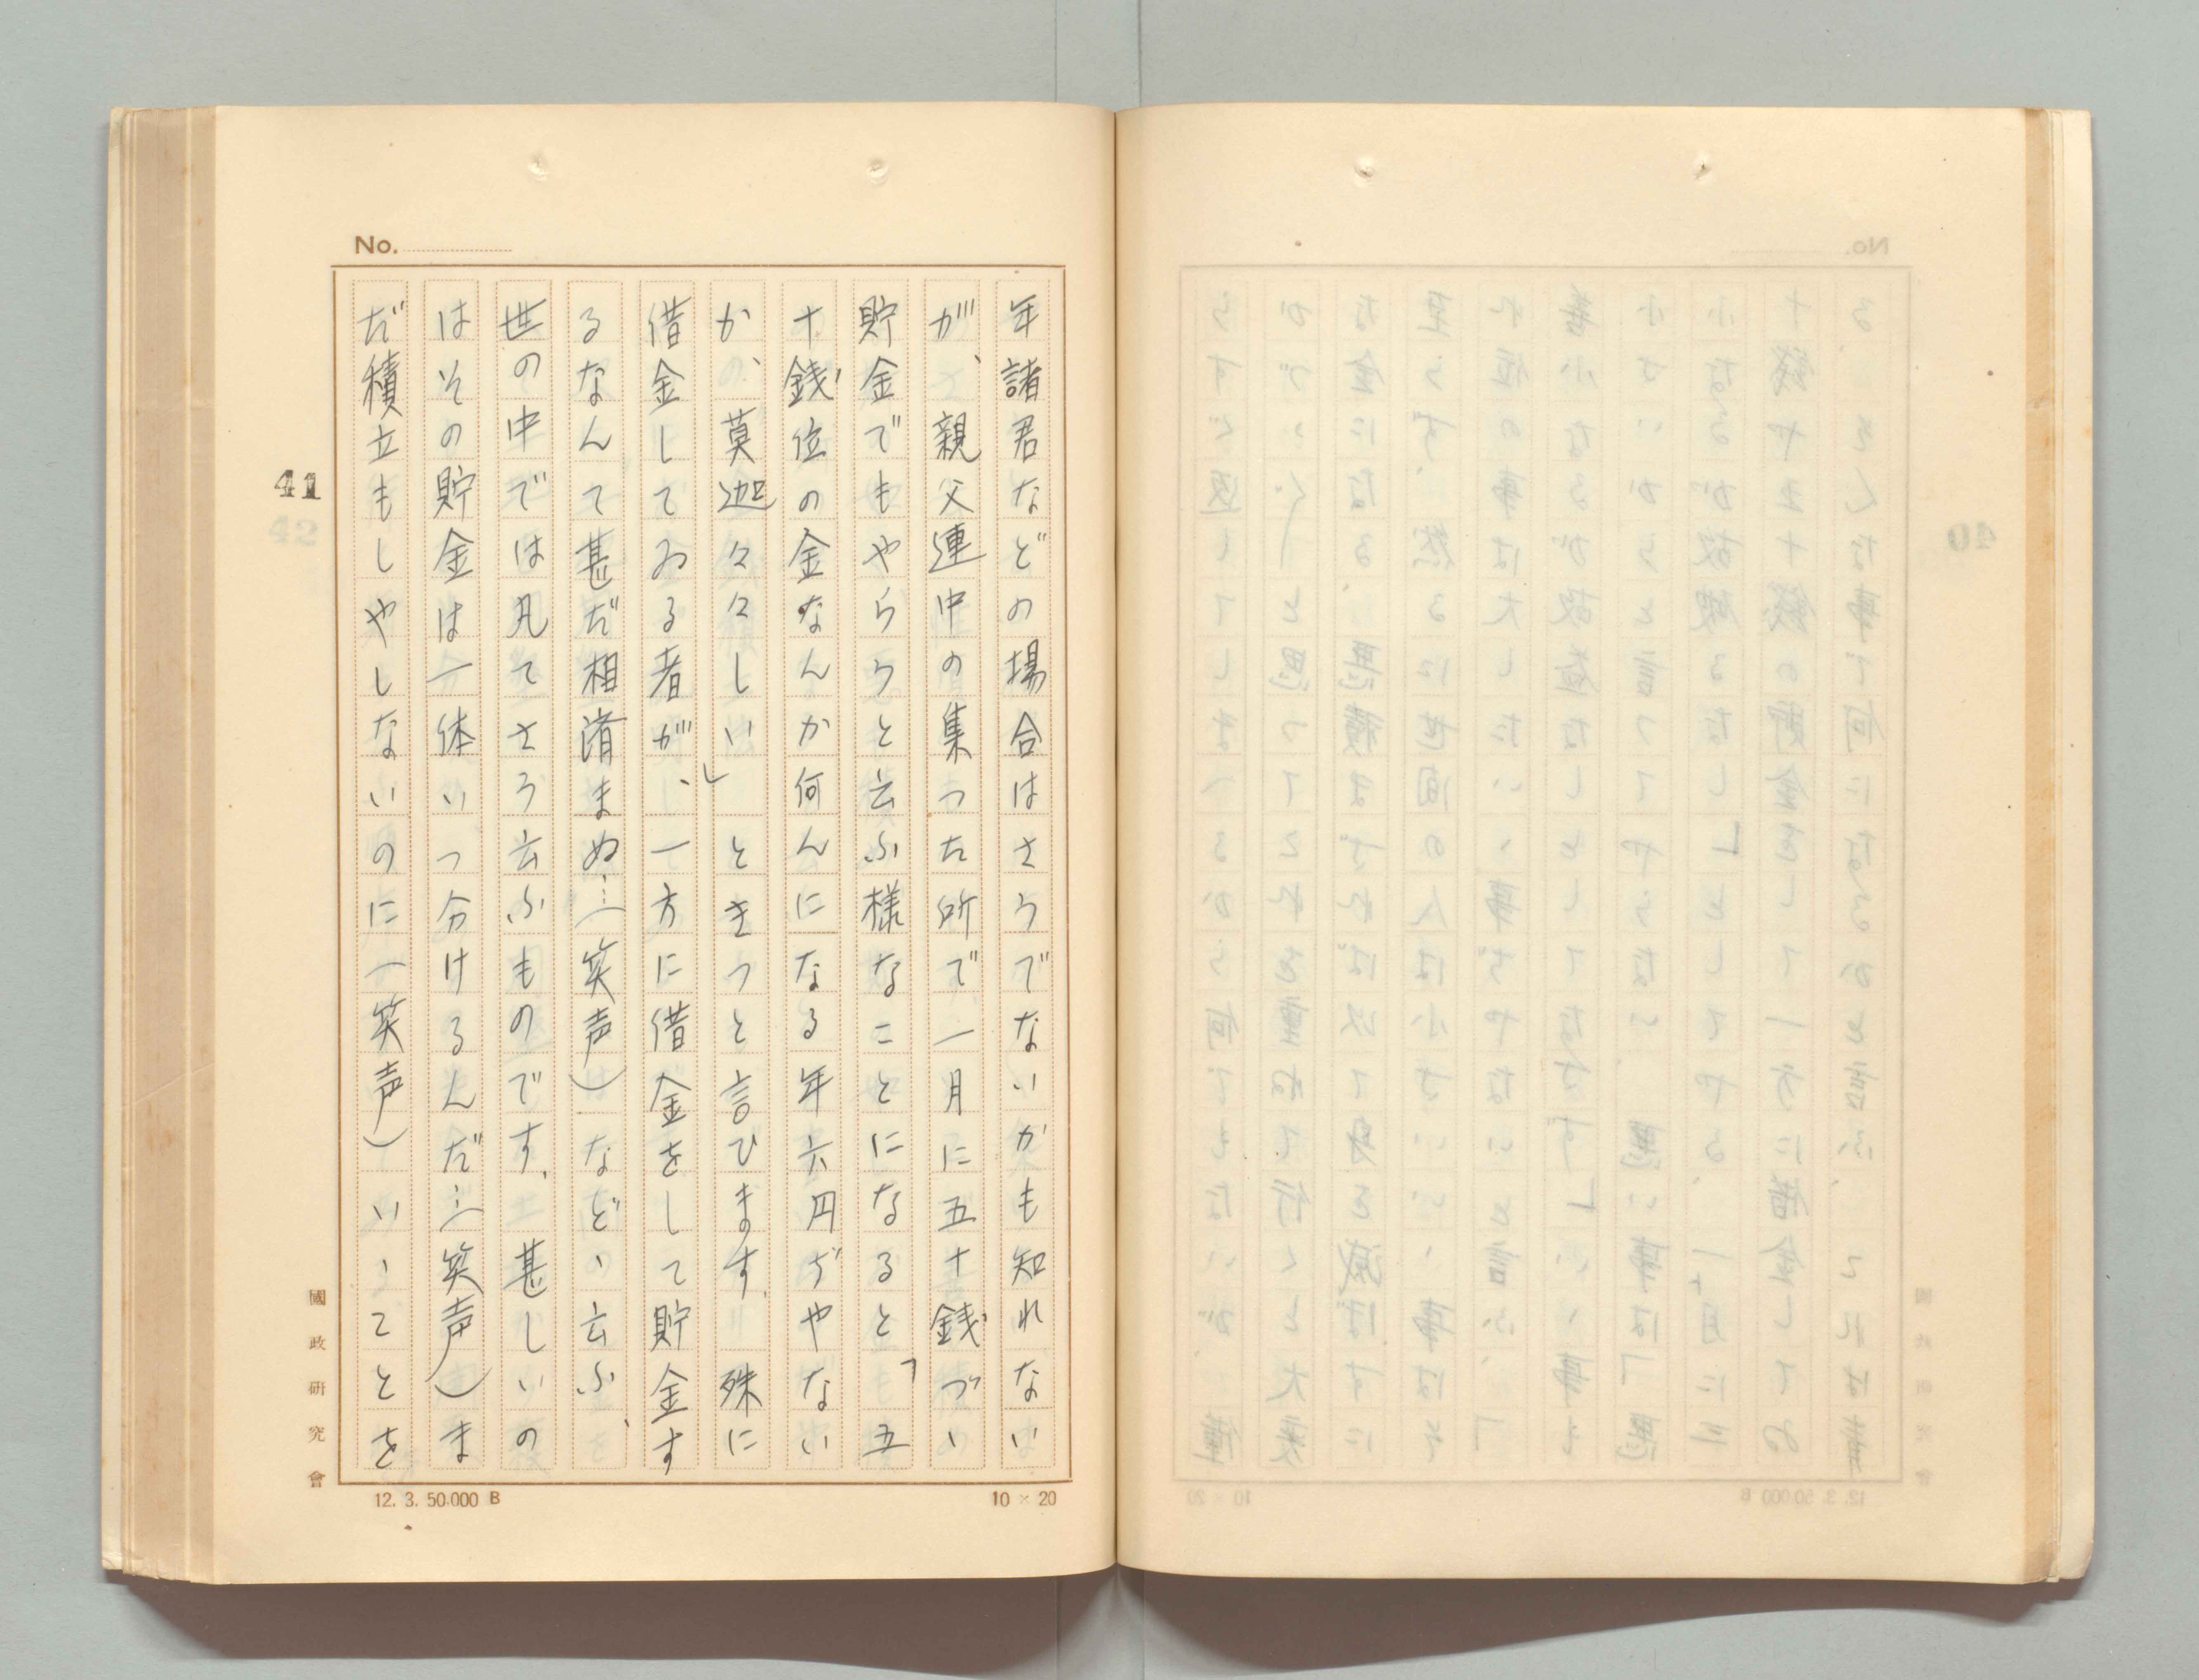 No.
年諸君などの場合はさうでないかも知れない
が、親父連中の集つた所で一月に五十銭づゝ
貯金でもやらうと云ふ様なことになると「五
十銭位の金なんか何んになる年六円ぢやない
か、莫迦々々しい」ときつと言ひます。殊に
借金してゐる者が、一方に借金をして貯金す
るなんて甚だ相済まぬ…(笑声)などゝ云ふ、
世の中では凡てさう云ふものです、甚しいの
はその貯金は一体いつ分けるんだ…(笑声)ま
だ積立もしやしないのに(笑声)いゝことを
41
國政研究會
12. 3. 50.000 B
10×20